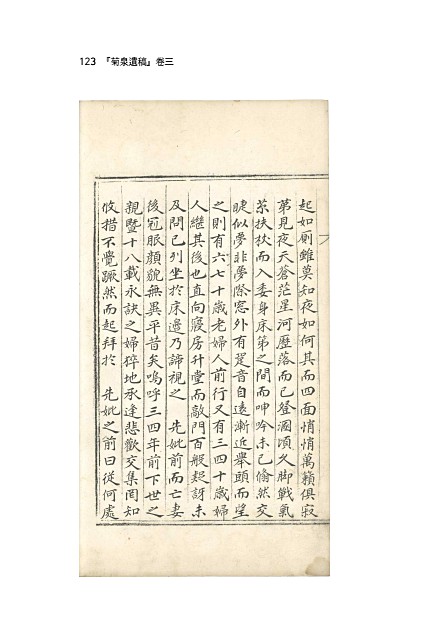 123 『菊泉遺稿』卷三
起如廁雖莫知夜如何其而四面悄悄萬籟俱寂
第見夜天蒼茫星河歷落而已登溷頃久脚戰氣
茶扶杖而入委身床第之間而呻吟未已翛然交
睫似夢非夢際窓外有跫音自遠漸近擧頭而望
之則有六七十歲老婦人前行又有三四十歲婦
人繼其後也直向寢房升堂而敲門百般疑訝未
及問已列坐於床邊乃諦視之 先妣前而亡妻
後冠服顔貌無異平昔矣嗚呼三四年前下世之
親曁十八載永訣之婦猝地承逢悲歡交集罔知
攸措不覺蹶然而起拜於 先妣之前曰從何處